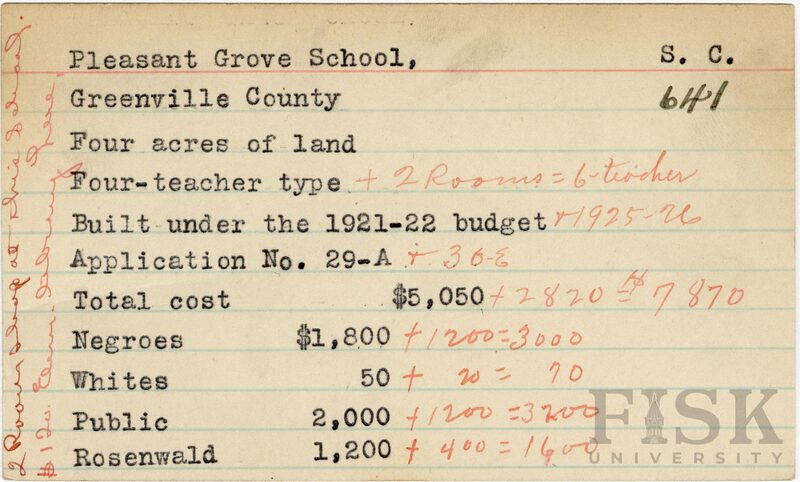 Pleasant Grove School, S. C.
Greenville County 641
Four acres of land
Four-teacher type + 2 Rooms = 6-teacher
Built under the 1921-22 budget + 1925-26
Application No. 29-A + 36-E
Total cost $5,050 + 2820 = $7870
Negroes $1,800 + 1200 = 3000
Whites 50 + 20 = 70
Public 2,000 + 1200 = 3200
Rosenwald 1,200 + 400 = 1600
2 Room shop at this school.
FISK
UNIVERSITY